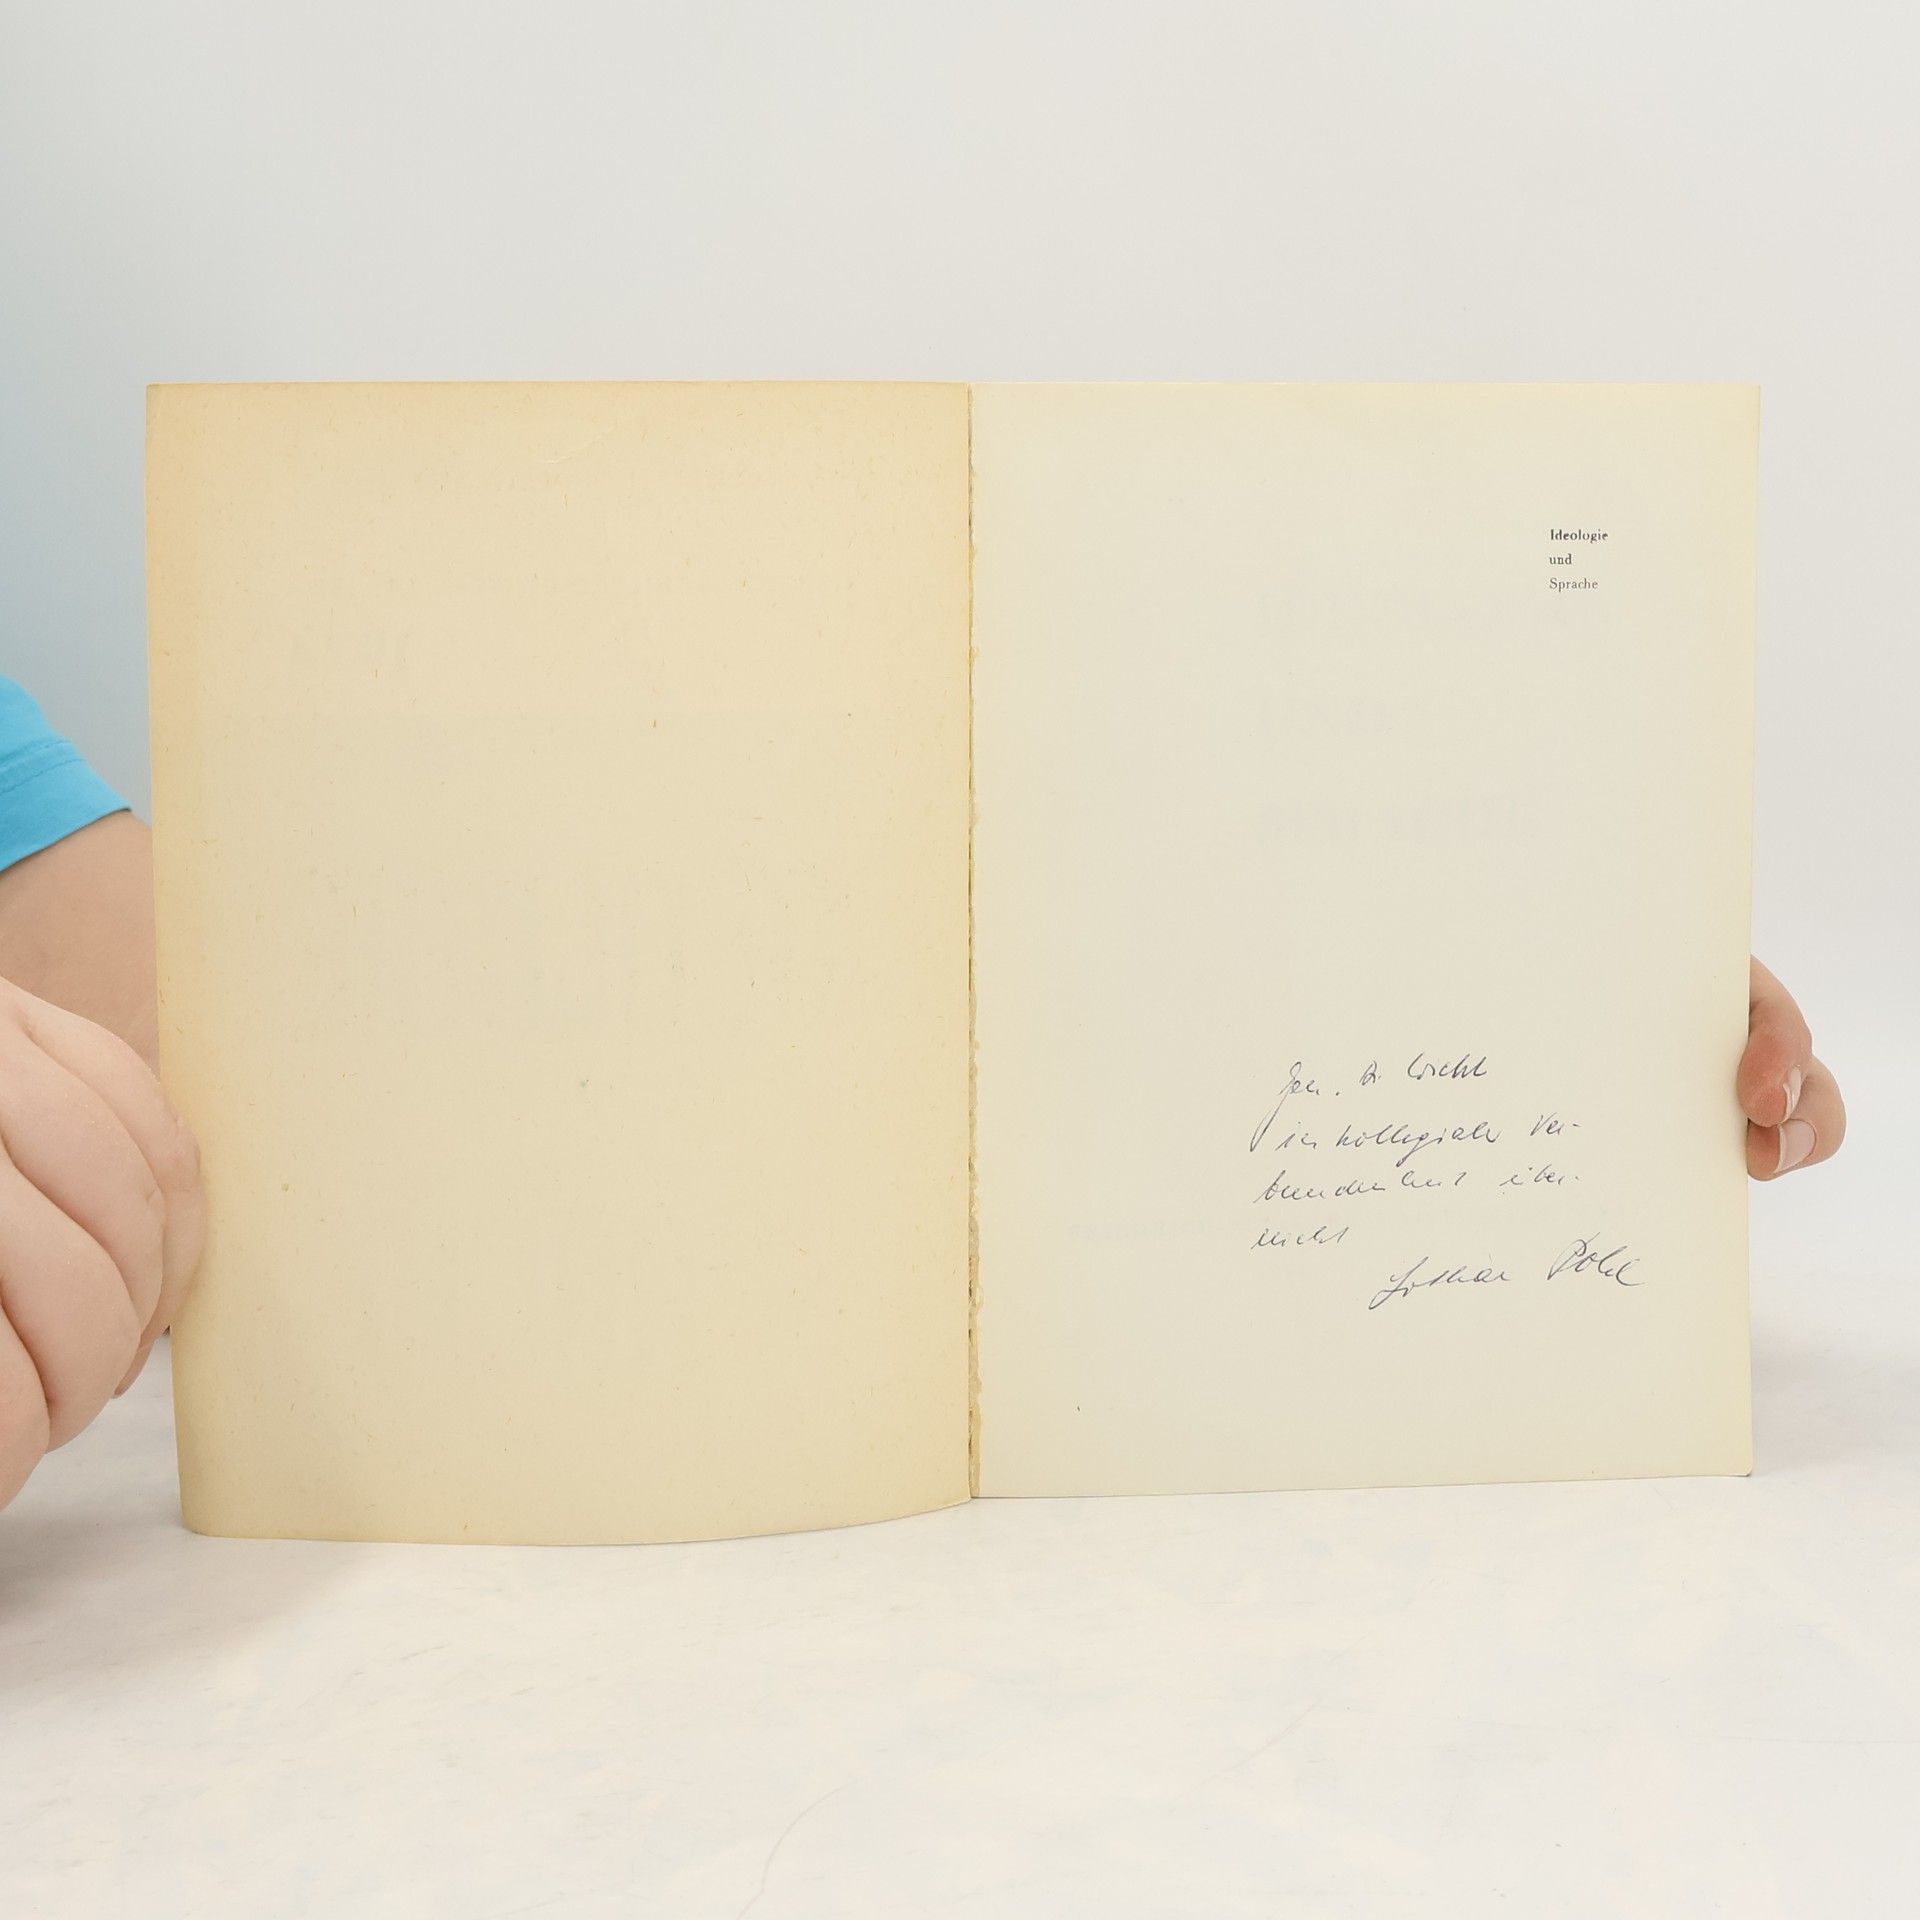 Ideologie
und
Sprache
Gen. Dr.
in kollegialer Ver-
bundenheit über-
reicht
Lothar Pohl